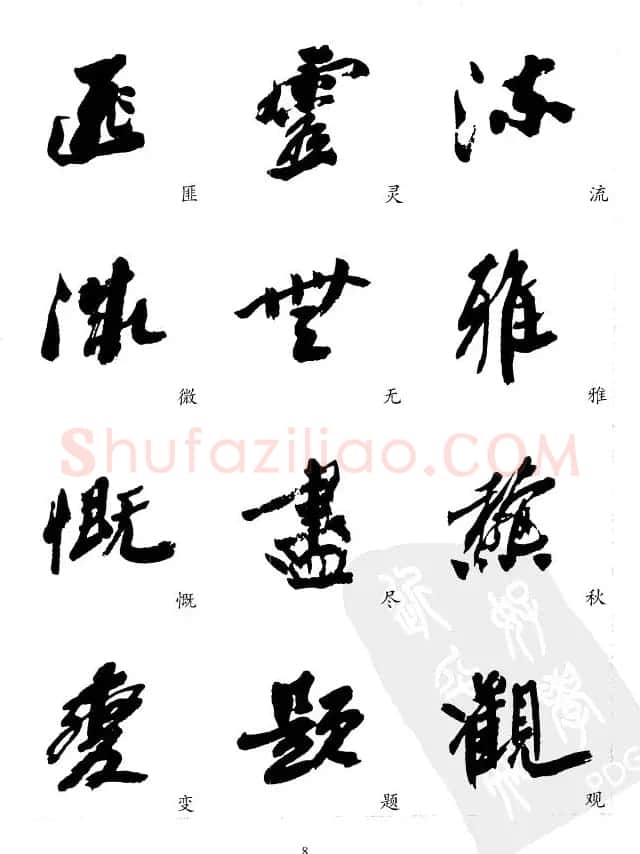 匪 靈 流
匪 灵 流
微 無 雅
微 无 雅
Shufaziliao.COM
慨 盡
慨 尽 秋
變 題 觀
变 题 观
PDG
8